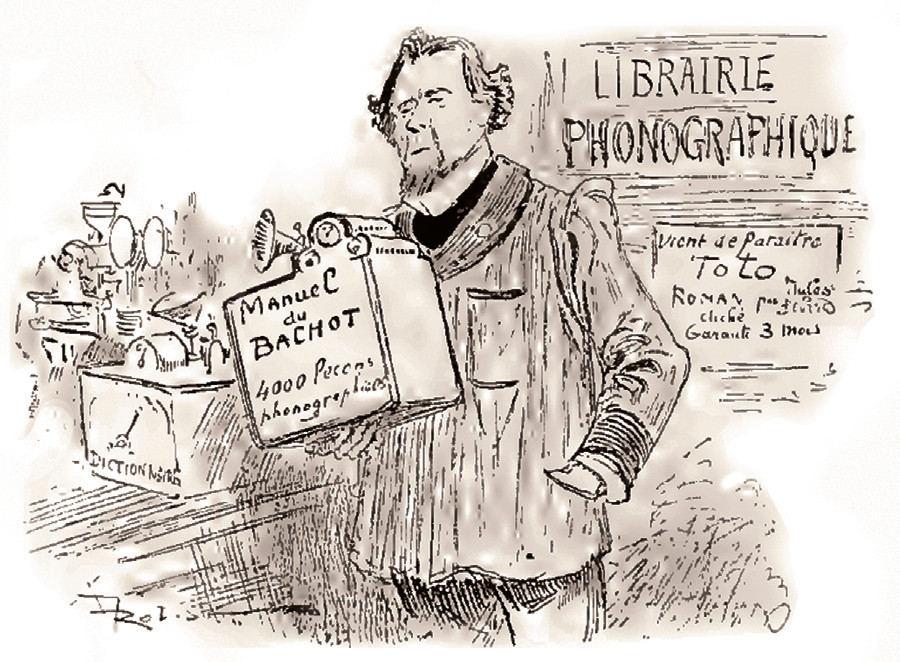 LIBRAIRIE
PHONOGRAPHIQUE
Vient de Paraitre
Toto
ROMAN par
cliché
Garanti 3 mois
ManueL
du
BACHOT
4000 Leçons
phonographiées
DICTIONNAIRE